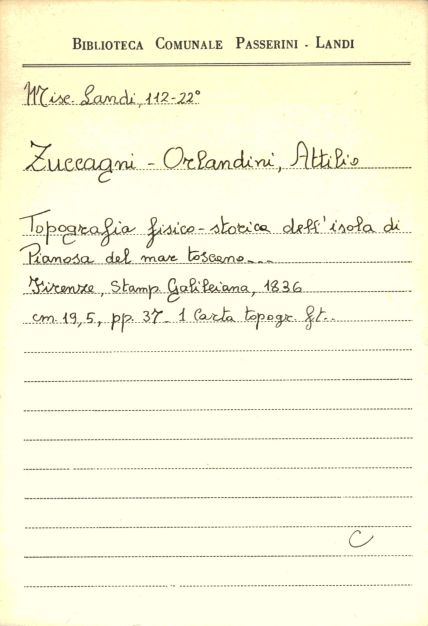 BIBLIOTECA COMUNALE PASSERINI - LANDI
Misc. Landi, 112-22°
Zuccagni - Orlandini, Attilio
Topografia fisico-storica dell'isola di
Pianosa del mar toscano...
Firenze, Stamp. Galileiana, 1836
cm 19,5, pp. 37. 1 Carta topogr. f.t..
C